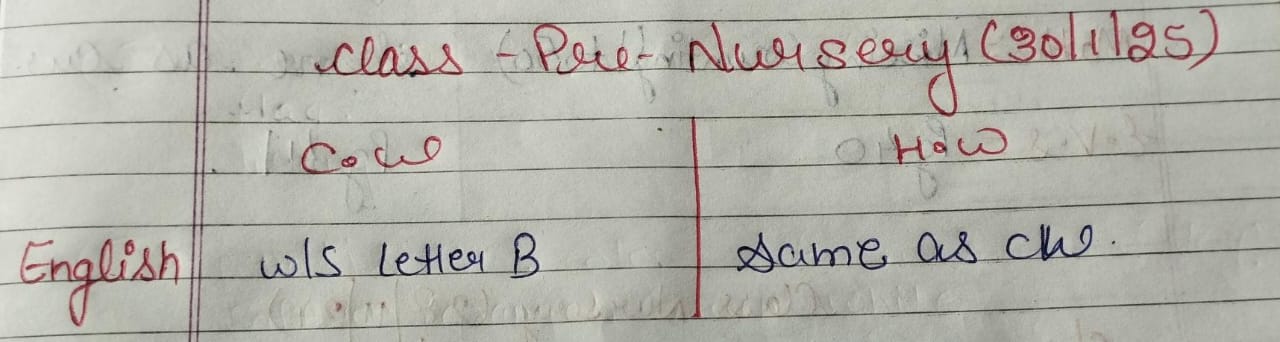 class - Pre-Nursery (30/1/25)
C.W H.W
English W/S letter B Same as CW.